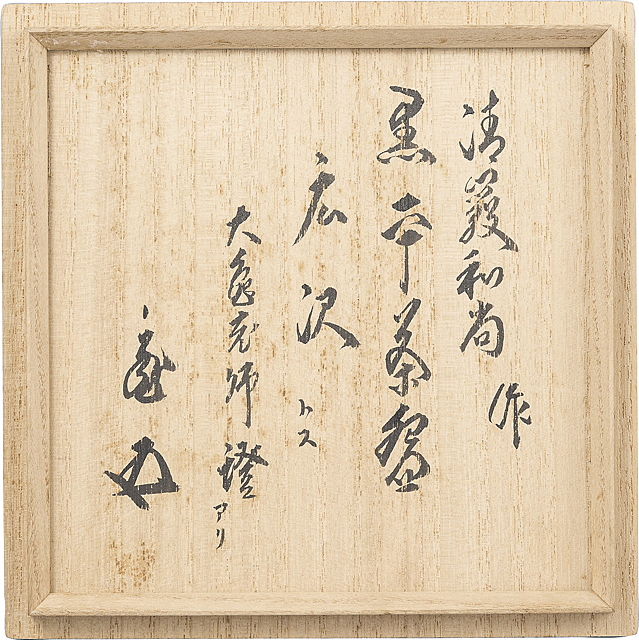 清巖和尚 作
黒平茶盌
広沢 トス
大亀老師 證アリ